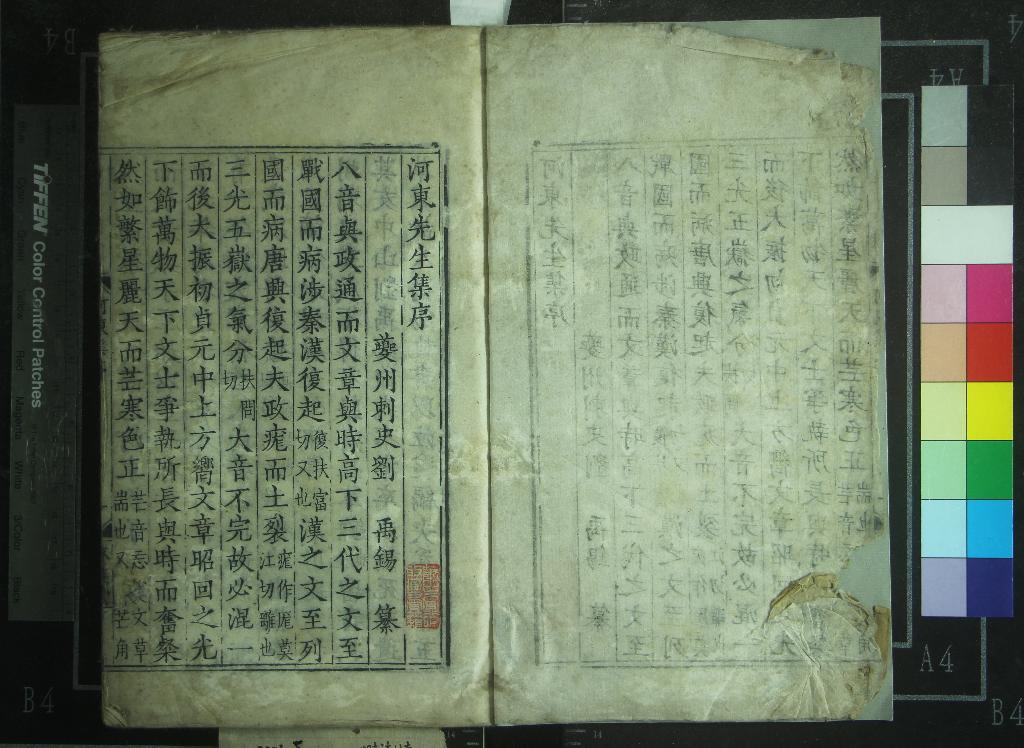 河東先生集序
夔州刺史劉 禹錫 纂
八音與政通而文章與時高下三代之文至
戰國而病涉秦漢復起復扶富切又也漢之文至列
國而病唐興復起夫政厖而土裂厖作厖莫江切雜也
三光五嶽之氣分扶問切大音不完故必混一
而後大振初貞元中上方嚮文章昭回之光
下飾萬物天下文士爭執所長與時而奮粲
然如繁星麗天而芒寒色正芒音忘文草耑也又芒角
TIFFEN Color Control Patches
A4
B4
B4